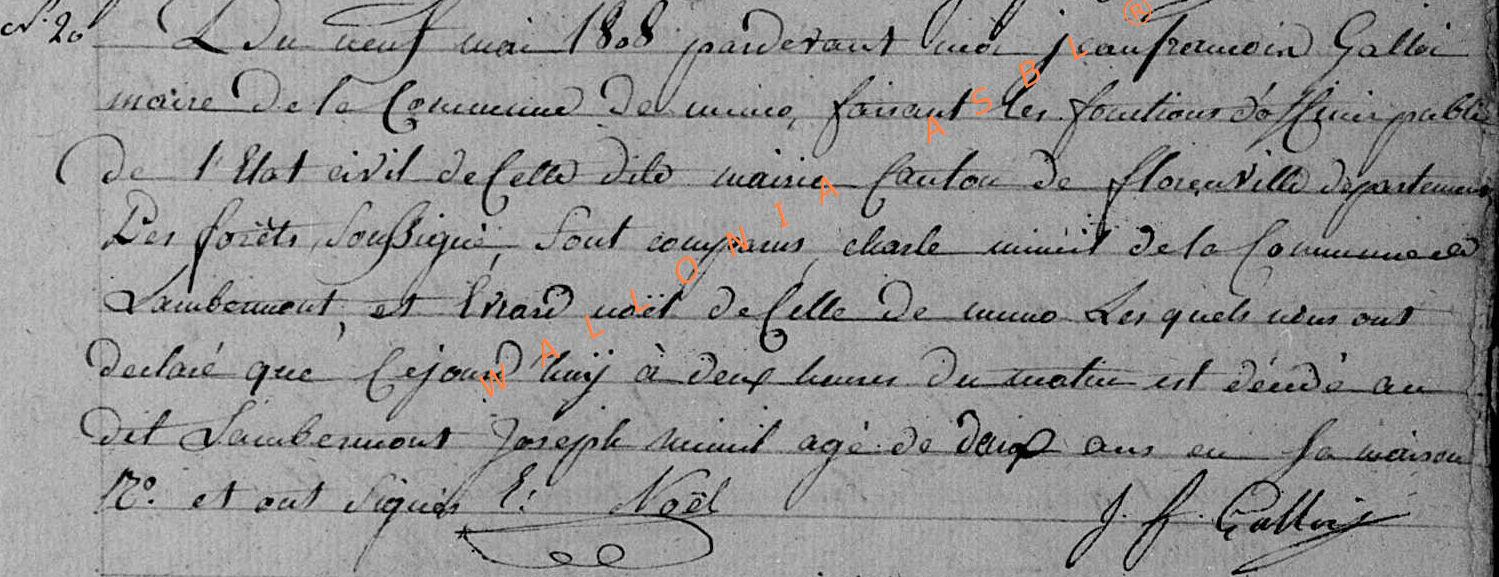 N.° 20 Du neuf mai 1808 pardevant moi jean françois Galloi
maire de la Commune de muno, faisant les fonctions d'officier public
de l'Etat civil de Celle dite mairie Canton de florenville departement
Des forêts, soussigné, sont comparus, charle de la Commune de
Lambermont, et Erard noël de Celle de muno Lesquels nous ont
declaré que Cejourd'huij à deux heures du matin est décédé au
dit Lambermont Joseph agé de deux ans en sa maison
N.° et ont signés E: Noël J. f. Galloi
WALLONIA ASBL ®